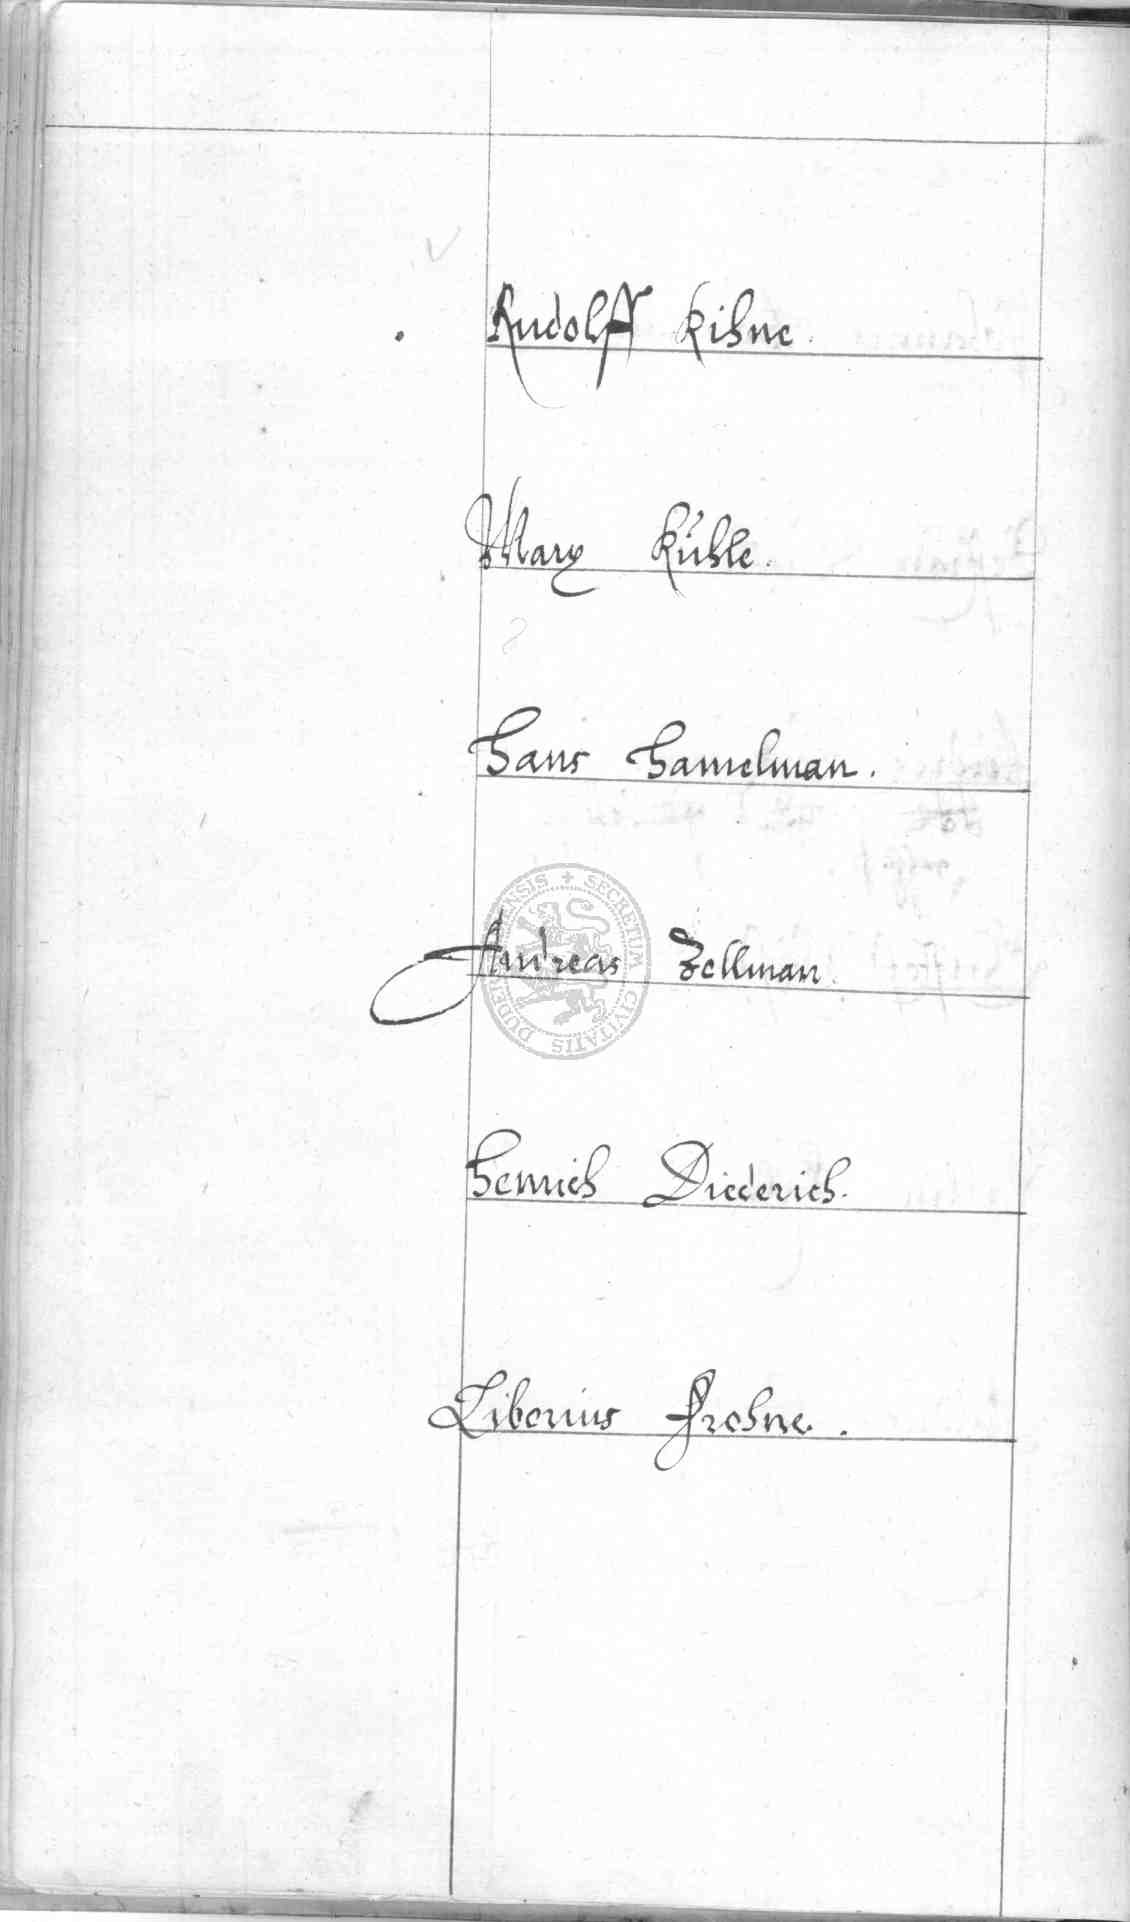 Rudolff Kihne.
Marx Kühle.
Hans Hamelman.
Andreas Zellman.
SECRETUM CIVITATIS DUDERSTADENSIS
Henrich Diederich.
Liborius Frohne.